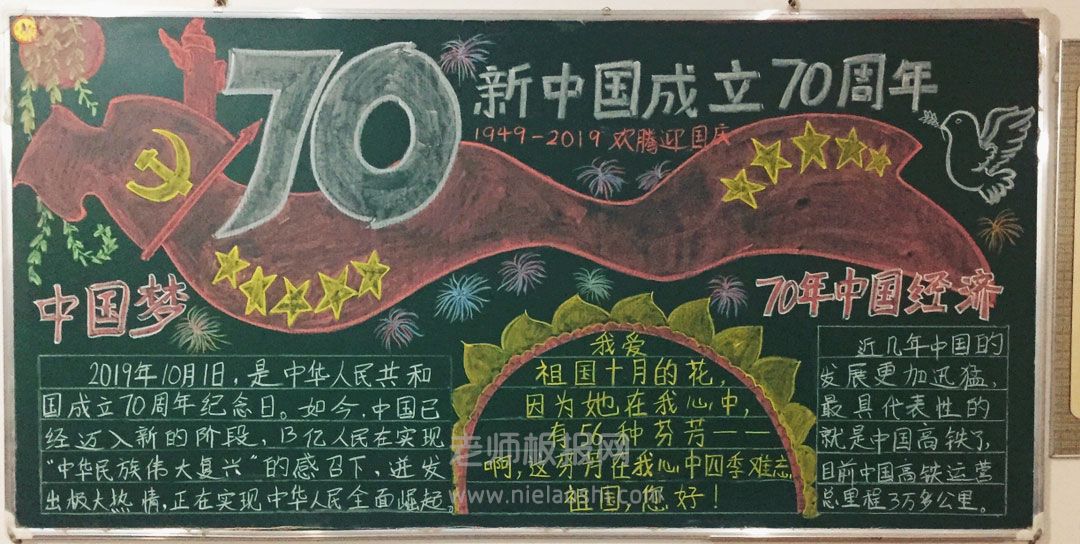 70
新中国成立70周年
1949-2019 欢腾迎国庆
中国梦
2019年10月1日,是中华人民共和
国成立70周年纪念日。如今,中国已
经迈入新的阶段,13亿人民在实现
“中华民族伟大复兴”的感召下,迸发
出极大热情,正在实现中华人民全面崛起。
我爱
祖国十月的花,
因为她在我心中,
有56种芬芳——
啊,这芬芳在我心中四季难忘
祖国,您好!
70年中国经济
近几年中国的
发展更加迅猛,
最具代表性的
就是中国高铁了,
目前中国高铁运营
总里程3万多公里。
老师板报网